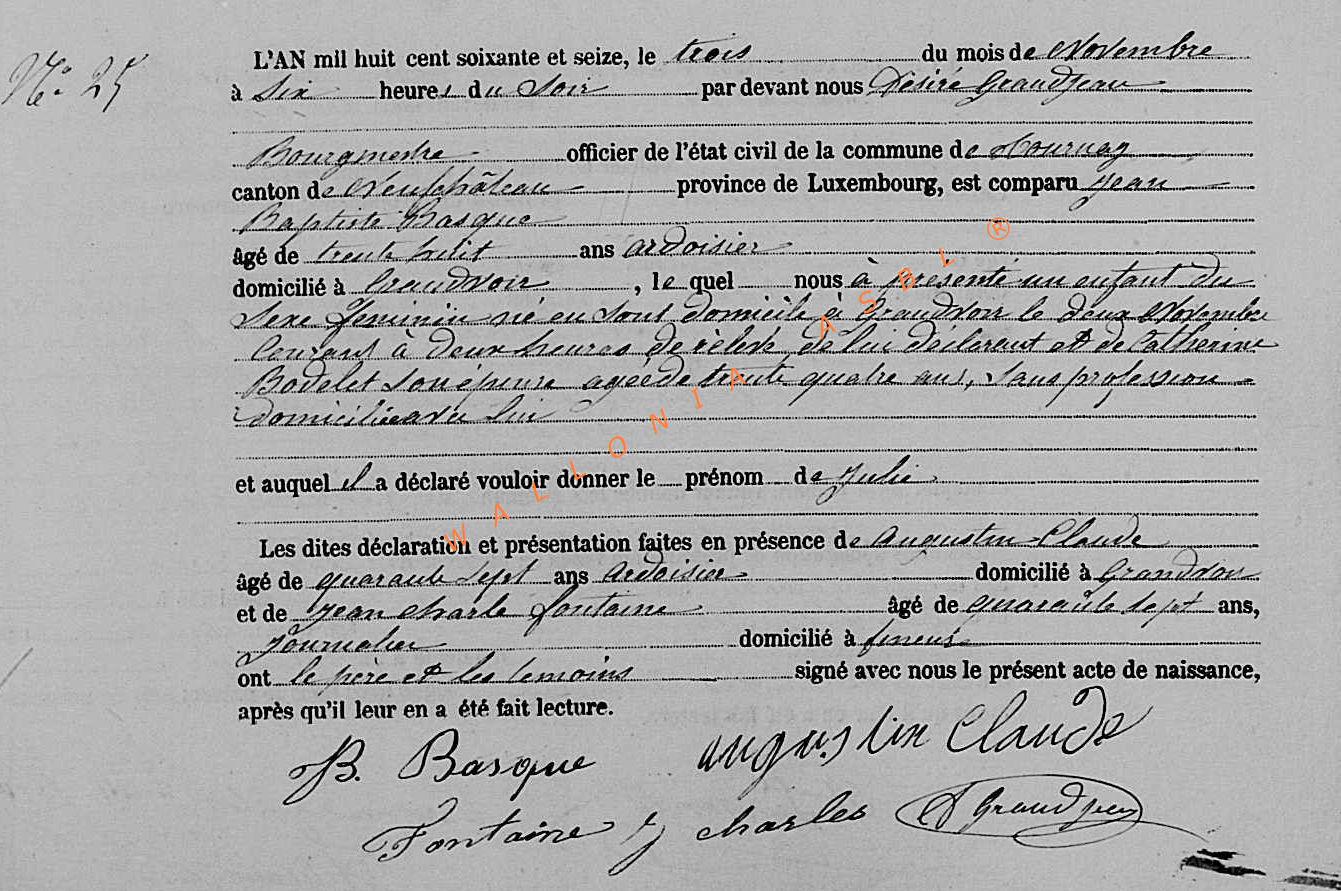 N° 25
L'AN mil huit cent soixante et seize, le trois du mois de Novembre
à Six heures du Soir par devant nous Désiré Grandjean
Bourgmestre officier de l'état civil de la commune de Tournay
canton de Neufchâteau province de Luxembourg, est comparu Jean
Baptiste Basque
âgé de trente huit ans ardoisier
domicilié à Grandvoir, le quel nous à présenté un enfant du
Sexe feminin né en Sont domicile à Grandvoir le deux Novembre
Courant à deux heures de de lui declarent et de Catherine
Bodelet Son épouse agée de trente quatre ans, Sans profession
domiciliée avec lui
et auquel il a déclaré vouloir donner le prénom de Julie
Les dites déclaration et présentation faites en présence de Augustin Claude
âgé de quarante Sept ans Ardoisier domicilié à Grandvoir
et de Jean Charle Fontaine âgé de quarante sept ans,
Journalier domicilié à
ont le père et les temoins signé avec nous le présent acte de naissance,
après qu'il leur en a été fait lecture.
JB. Basque augustin Claude
Fontaine j charles D Grandjean
WALLONIA ASBL ®